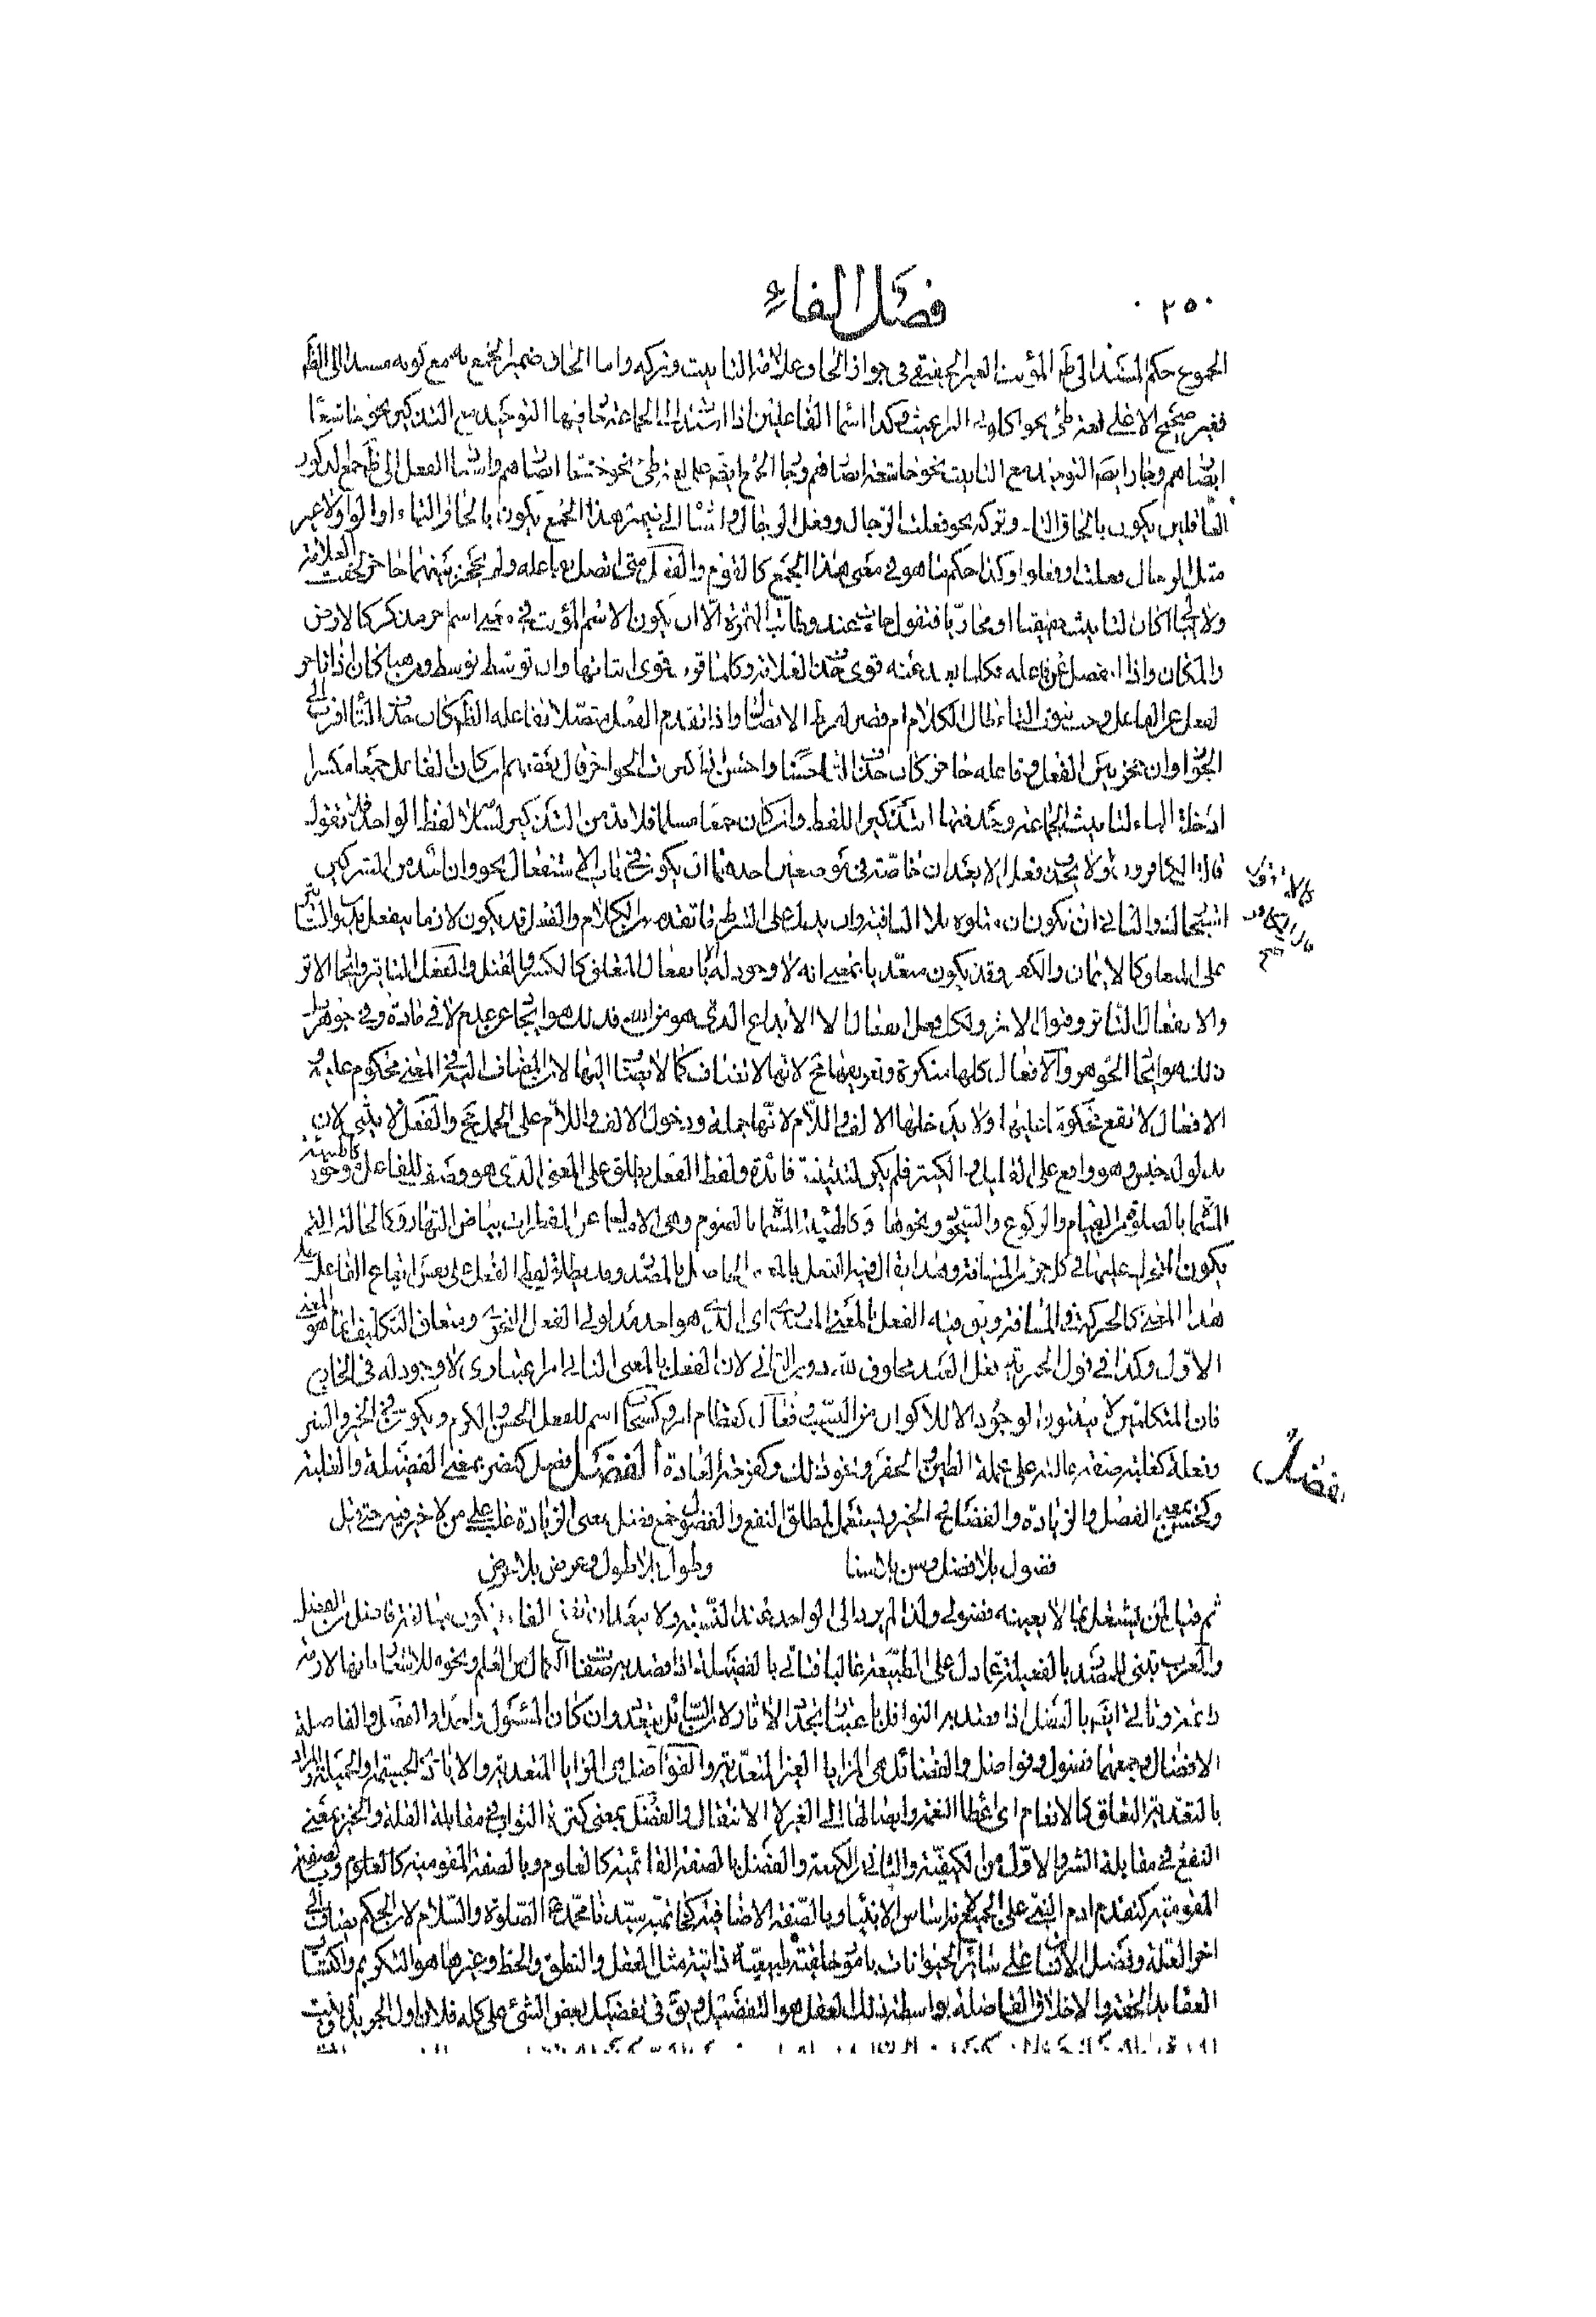 ٢٥٠
فصل الفاء
المجموع حكم المسند الى ظ المؤنث الغير الحقيقي في جواز الحاق علامة التانيث وتركه واما الحاق ضمير الجمع به مع كونه مسندا الى الظ
فغير صحيح الا على لغة طي نحو اكلوني البراغيث وكذا اسما الفاعلين اذا اسند الى الجماعة جا فيها التوحيد مع التذكير نحو خاشعا
ابصاهم وجا ايض التوحيد مع التانيث نحو خاشعة ابصاهم وجا الجمع ايض على لغة طي نحو خشعا ابصاهم واسنا الفعل الى ظ جمع المذكور
العاقلين يكون بالحاق التا وتركه نحو فعلت الرجال وفعل الرجال واسنا الى ضمير هذا الجمع يكون بالحاق التاء او الواو لا غير
مثل الرجال فعلت او فعلوا وكذا حكم ما هو في معنى هذا الجمع كالقوم والفعل متى اتصل بفاعله ولم يحجز بينهما حاجز لحقت العلامة
ولا يجب اكان التانيث حقيقيا او مجازيا فتقول جاءت هند وطابت الثمرة الا ان يكون الاسم المؤنث في معنى اسم اخر مذكر كالارض
والمكان واذا انفصل عن فاعله فكلما بعد عنه قوى حذف العلامة وكلما قرب قوى اثباتها وان توسط توسط ومن هنا كان اذا تاخر
الفعل عن الفاعل وجب ثبوت التاء طال الكلام ام قصر لفرط الاتصال واذا تقدم الفعل متصلا بفاعله الظ كان حذف التا اقرب الى
الجواز وان حجز بين الفعل وفاعله حاجز كان حذف التا حسنا واحسن اذا كثرت الحواجز قال بعضهم ان كان الفاعل جمعا مكسرا
ادخلت الهاء لتانيث الجماعة وحذفتها تذكيرا للفظ وان كان جمعا مسلما فلا بد من التذكير لسلامة لفظ الواحد فلا تقول
قالت الكافرون ولا يحذف فعل الا بعد ان خاصة في موضعين احدهما ان يكون في باب الاشتغال نحو وان احد من المشركين
استجارك والثاني ان تكون ان متلوة بلا النافية وان يدل على الشرط ما تقدمه من الكلام والفعل قد يكون لازما ينفعل بلا تاثير
على المفعول كالايمان والكفر وقد يكون متعديا بمعنى انه لا وجود له الا بانفعال المتعلق كالكسر والقتل والفعل التاثير وايجا الاثر
والانفعال التاثر وقبول الاثر ولكل فعل انفعال الا الابداع الذي هو من الله فذلك هو ايجا عن عدم لا في مادة وفي جوهر بل
ذلك هو ايجا الجوهر والافعال كلها منكرة وتعريفها مح لانها لا تضاف كما لا يضا اليها لان المضاف اليه في المعنى محكوم عليه
الافعال لا تقع محكوما عليها ولا يدخلها الالف واللام لانها جملة ودخول الالف واللام على الجمل مح والفعل لا يثنى لان
مدلوله جنس وهو واقع على القليل والكثير فلم يكن لتثنيته فائدة ولفظ الفعل يطلق على المعنى الذي هو وصف للفاعل موجود كالهيئة
المسماة بالصلوة من القيام والركوع والسجود ونحوها وكالهيئة المسماة بالصوم وهي الامساك عن المفطرات بياض النهار وكالحالة التي
يكون المتحرك عليها في كل جزء من المسافة وهذا يقال فيه الفعل بالمعنى الحاصل بالمصدر وقد يطلق لفظ الفعل على نفس ايقاع الفاعل
هذا المعنى كالحركة في المسافة ويق فيه الفعل بالمعنى المصدري اي الذي هو احد مدلولي الفعل النحوي ومتعلق التكليف انما هو المعنى
الاول وكذا في قول الجبرية فعل العبد مخلوق لله دون الثاني لان الفعل بالمعنى الثاني امر اعتباري لا وجود له في الخارج
فان المتكلمين لا يثبتون الوجود الا للاكوان من النسب وفعال كقطام امر وكسحاب اسم للفعل الحسن والكرم ويكون في الخير والشر
وفعلة كغلبة صفة غالبة على عملة الطين والحفر ونحو ذلك وكفرحة العادة الفضل فضل كنصر بمعنى الفضيلة والغلبة
وكحسن بمعنى الفضل والزيادة والفضل في الخير ويستعمل لمطلق النفع والفضول جمع فضل بمعنى الزيادة غلب على من لا خير فيه حتى قيل
فضول بلا فضل وسن بلا سنا وطول بلا طول وعرض بلا عرض
ثم قيل لمن يشتغل بما لا يعنيه فضولي ولذا لم يرد الى الواحد عند النسبة ولا يبعد ان تفتح الفاء فيكون مبالغة فاضل من الفضل
والعرب تبنى المصدر بالفعيلة عما دل على الطبيعة غالبا فتاتي بالفضيلة اذا قصد به صفات الكمال من العلم ونحوه للاشعار بانها لازمة
دائمة وتاتي ايض بالفضل اذا قصد به النوافل باعتبار تجدد الاثار لا السائل يتعدد وان كان المسئول واحدا والفضل والفاضلة
الافضال وجمعهما فضول وفواضل والفضائل هي المزايا الغير المتعدية والفواضل هي المزايا المتعدية والايادي الجسيمة والجميلة والمراد
بالتعدية التعلق كالانعام اي اعطا النعمة وايصالها الى الغير لا الانتقال والفضل بمعنى كثرة الثواب في مقابلة القلة والخير بمعنى
النفع في مقابلة الشر والاول من الكيفية والثاني من الكمية والفضل بالصفة القائمية كالعلوم وبالصفة المقومية كالعلوم وبالصفة
المقومية كتقدم ادم النبي على الجميع لانه اساس الانبياء وبالصفة الاضافية كخاتمية سيدنا محمد عليه الصلوة والسلام لان الحكم يضاف الى
اخر العلة وفضل الانسا على سائر الحيوانات بامور خلقية طبيعية ذاتية مثل العقل والنطق والخط وغيرها هو التكريم واكتساب
العقايد الحقة والاخلاق الفاضلة بواسطة ذلك العقل هو التفضيل ويق في تفضيل بعض الشئ على كله فلان اول الجريدة
فضل